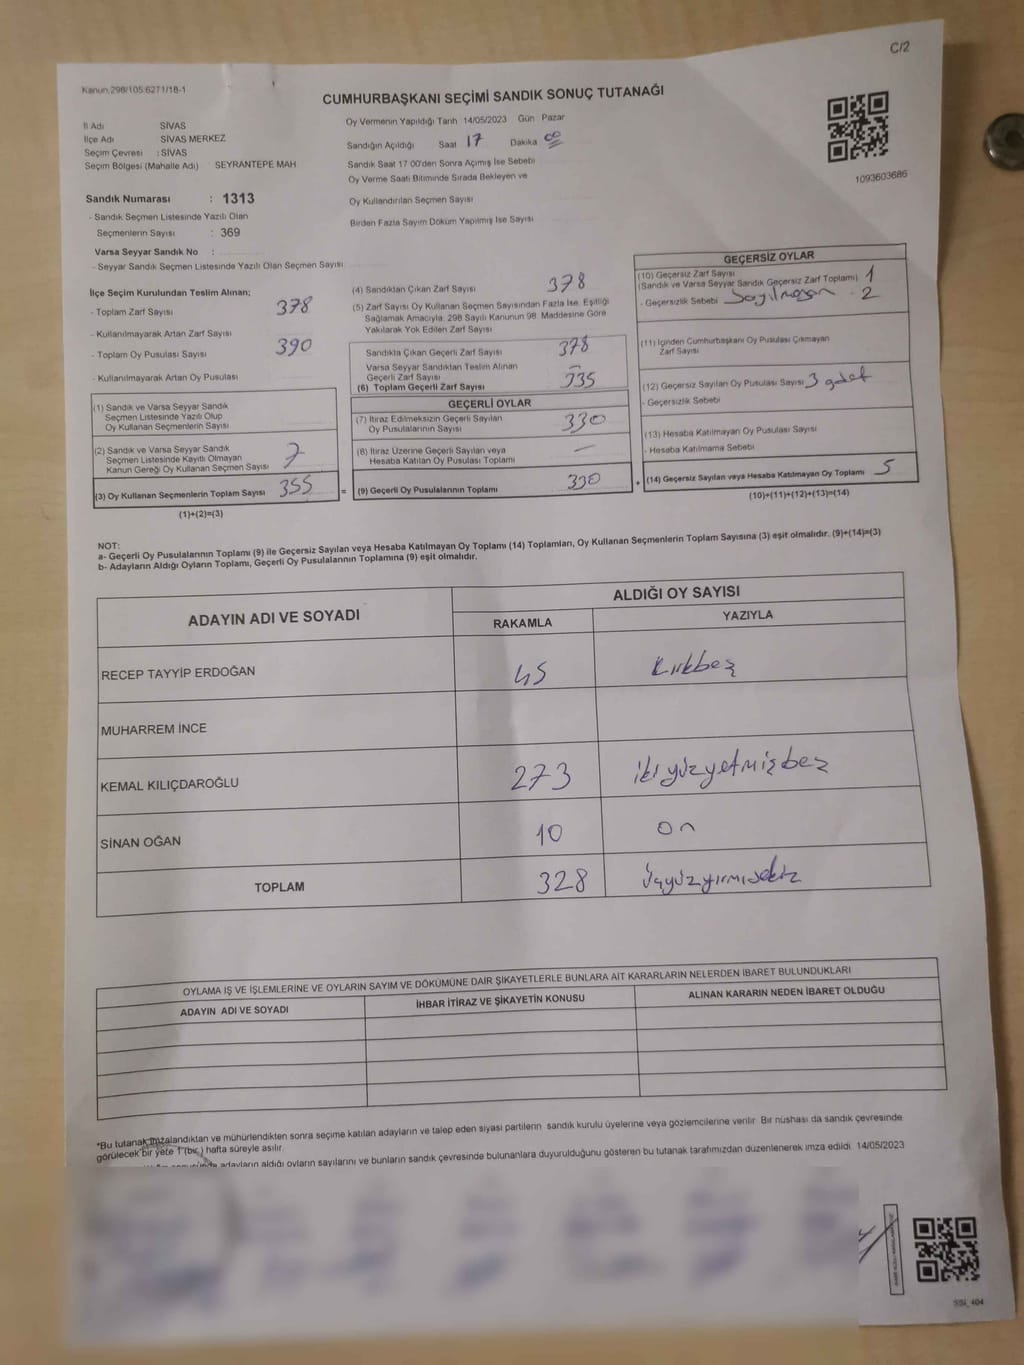 C/2
Kanun,298/105:6271/18-1
CUMHURBAŞKANI SEÇİMİ SANDIK SONUÇ TUTANAĞI
İl Adı SİVAS
İlçe Adı SİVAS MERKEZ
Seçim Çevresi : SİVAS
Seçim Bölgesi (Mahalle Adı) SEYRANTEPE MAH
Oy Vermenin Yapıldığı Tarih 14/05/2023 Gün Pazar
Sandığın Açıldığı Saat 17 Dakika 00
Sandık Saat 17 00'den Sonra Açımış İse Sebebi
Oy Verme Saati Bitiminde Sırada Bekleyen ve
Oy Kullandırılan Seçmen Sayısı
Birden Fazla Sayım Döküm Yapılmış İse Sayısı
1093603686
Sandık Numarası : 1313
- Sandık Seçmen Listesinde Yazılı Olan
Seçmenlerin Sayısı : 369
Varsa Seyyar Sandık No :
- Seyyar Sandık Seçmen Listesinde Yazılı Olan Seçmen Sayısı
İlçe Seçim Kurulundan Teslim Alınan;
- Toplam Zarf Sayısı 378
- Kullanılmayarak Artan Zarf Sayısı
- Toplam Oy Pusulası Sayısı 390
- Kullanılmayarak Artan Oy Pusulası
(1) Sandık ve Varsa Seyyar Sandık
Seçmen Listesinde Yazılı Olup
Oy Kullanan Seçmenlerin Sayısı
(2) Sandık ve Varsa Seyyar Sandık
Seçmen Listesinde Kayıtlı Olmayan
Kanun Gereği Oy Kullanan Seçmen Sayısı 7
(3) Oy Kullanan Seçmenlerin Toplam Sayısı 355
(1)+(2)=(3)
(4) Sandıktan Çıkan Zarf Sayısı 378
(5) Zarf Sayısı Oy Kullanan Seçmen Sayısından Fazla İse, Eşitliği
Sağlamak Amacıyla, 298 Sayılı Kanunun 98. Maddesine Göre
Yakılarak Yok Edilen Zarf Sayısı
Sandıkta Çıkan Geçerli Zarf Sayısı 378
Varsa Seyyar Sandıktan Teslim Alınan
Geçerli Zarf Sayısı —
(6) Toplam Geçerli Zarf Sayısı 335
GEÇERLİ OYLAR
(7) İtiraz Edilmeksizin Geçerli Sayılan
Oy Pusulalarının Sayısı 330
(8) İtiraz Üzerine Geçerli Sayılan veya
Hesaba Katılan Oy Pusulası Toplamı —
= (9) Geçerli Oy Pusulalarının Toplamı 330
GEÇERSİZ OYLAR
(10) Geçersiz Zarf Sayısı
(Sandık ve Varsa Seyyar Sandık Geçersiz Zarf Toplamı) 1
- Geçersizlik Sebebi Sayılmayan 2
(11) İçinden Cumhurbaşkanı Oy Pusulası Çıkmayan
Zarf Sayısı
(12) Geçersiz Sayılan Oy Pusulası Sayısı 3 adet
- Geçersizlik Sebebi
(13) Hesaba Katılmayan Oy Pusulası Sayısı
- Hesaba Katılmama Sebebi
+ (14) Geçersiz Sayılan veya Hesaba Katılmayan Oy Toplamı 5
(10)+(11)+(12)+(13)=(14)
NOT:
a- Geçerli Oy Pusulalarının Toplamı (9) ile Geçersiz Sayılan veya Hesaba Katılmayan Oy Toplamı (14) Toplamları, Oy Kullanan Seçmenlerin Toplam Sayısına (3) eşit olmalıdır. (9)+(14)=(3)
b- Adayların Aldığı Oyların Toplamı, Geçerli Oy Pusulalarının Toplamına (9) eşit olmalıdır.
ADAYIN ADI VE SOYADI ALDIĞI OY SAYISI
RAKAMLA YAZIYLA
RECEP TAYYİP ERDOĞAN 45 Kırkbeş
MUHARREM İNCE
KEMAL KILIÇDAROĞLU 273 ikiyüzyetmişbeş
SİNAN OĞAN 10 on
TOPLAM 328 üçyüzyirmisekiz
OYLAMA İŞ VE İŞLEMLERİNE VE OYLARIN SAYIM VE DÖKÜMÜNE DAİR ŞİKAYETLERLE BUNLARA AİT KARARLARIN NELERDEN İBARET BULUNDUKLARI
ADAYIN ADI VE SOYADI İHBAR İTİRAZ VE ŞİKAYETİN KONUSU ALINAN KARARIN NEDEN İBARET OLDUĞU
*Bu tutanak imzalandıktan ve mühürlendikten sonra seçime katılan adayların ve talep eden siyasi partilerin sandık kurulu üyelerine veya gözlemcilerine verilir. Bir nüshası da sandık çevresinde
görülecek bir yere 1 (bir) hafta süreyle asılır.
adayların aldığı oyların sayılarını ve bunların sandık çevresinde bulunanlara duyurulduğunu gösteren bu tutanak tarafımızdan düzenlenerek imza edildi. 14/05/2023
SSI_404